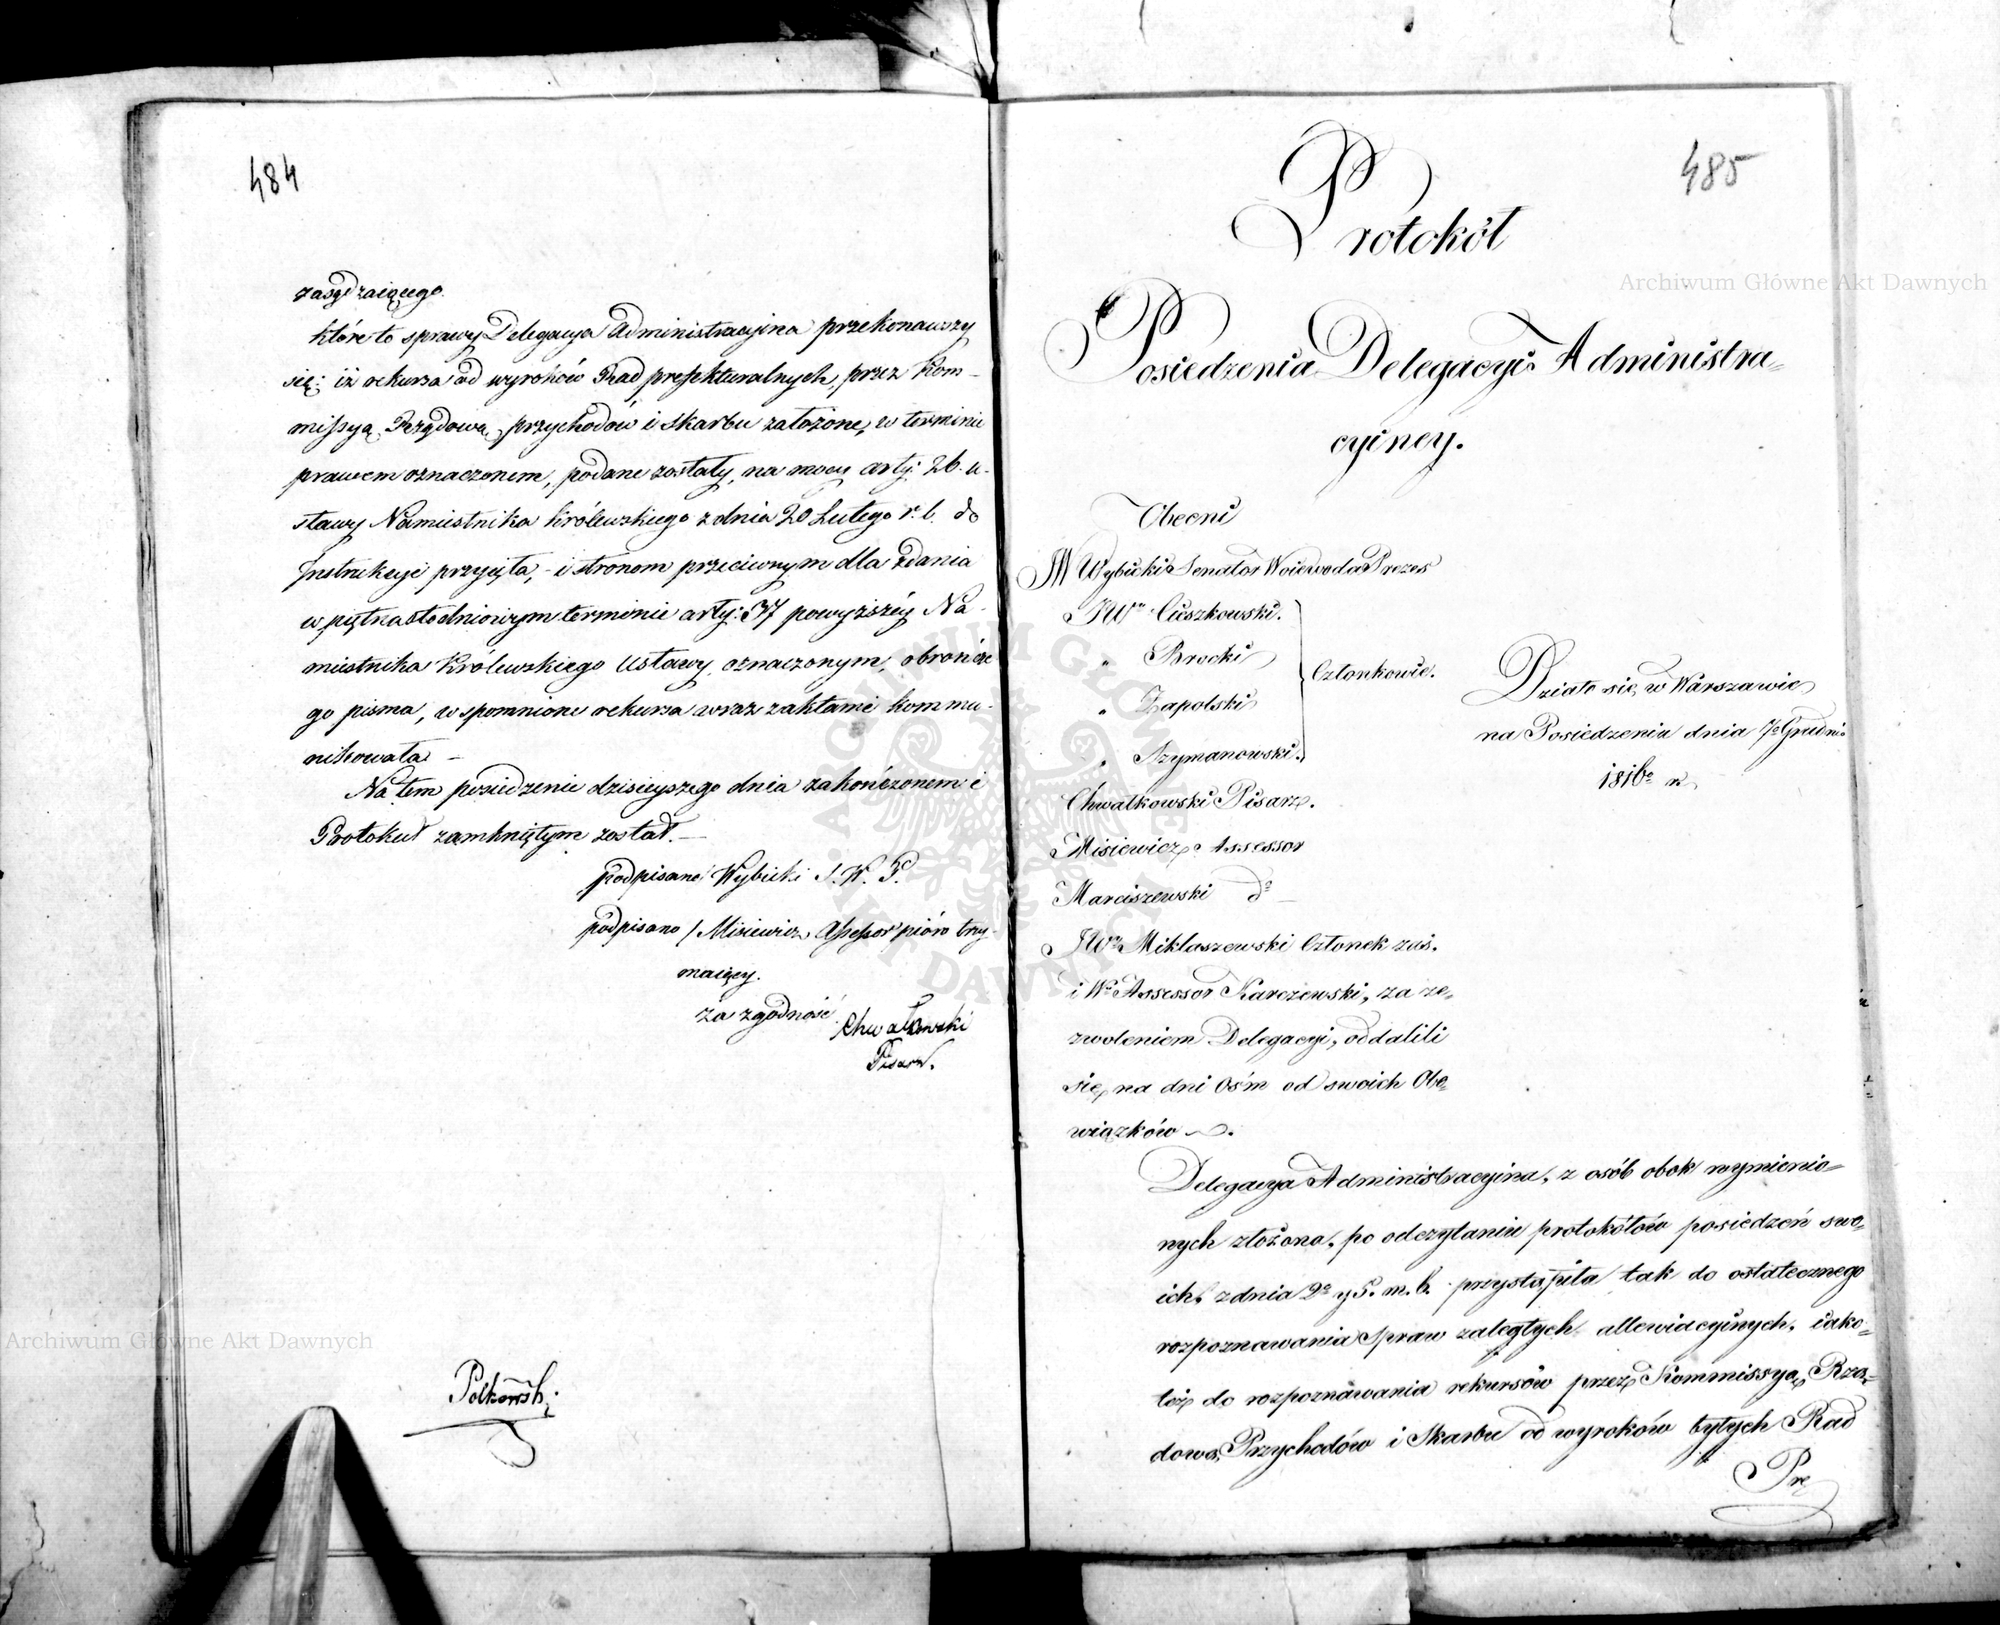 484
zasądzaiącego.
które to sprawy Delegacya Administracyina przekonawszy
się; iż rekursa od wyroków Rad prefekturalnych, przez Kom-
missyą Rządową przychodów i skarbu założone, w terminie
prawem oznaczonem, podane zostały, na mocy arty: 26. u-
stawy Namiestnika Królewskiego z dnia 20 Lutego r. b. do
Instrukcyi przyięta, - i stronom przeciwnym dla zdania
w piętnastodniowym terminie arty: 37 powyższéy Na-
miestnika Królewskiego Ustawy, oznaczonym, obronne-
go pisma, wspomnione rekursa wraz z akta­mi kommu-
nikowała. -
Na tem posiedzenie dzisieyszego dnia zakończonem i
Protokuł zamkniętym został. -
podpisano Wybicki S. W. P.
podpisano / Misiewicz Assessor pióro trzy-
maiący.
za zgodność Chwałkowski
Pisarz.
Polkowski
485
Protokół
Posiedzenia Delegacyi Administra=
cyiney.
Obecni
JW Wybicki Senator Woiewoda Prezes
JWn Cieszkowski.
" Brocki
" Zapolski
" Szymanowski.
Członkowie.
Działo się w Warszawie
na Posiedzeniu dnia 7o Grudnia
1816o r.
Chwałkowski Pisarz.
Misiewicz Assessor
Marciszewski do -
JWn Miklaszewski Członek zaś.
i Wn Assessor Karczewski, za ze=
zwoleniem Delegacyi, oddalili
się na dni Ośm od swoich Obo=
wiązków.
Delegacya Administracyina, z osób obok wymienio=
nych złożona, po odczytaniu protokółów posiedzeń swo=
ich, z dnia 2o y 5. m. b. przystąpiła tak do ostatecznego
rozpoznawania spraw zaległych allewiacyinych. iako=
też do rozpoznawania rekursów przez Kommissyą Rzą=
dową Przychodów i Skarbu od wyroków byłych Rad
Pre
Archiwum Główne Akt Dawnych
Archiwum Główne Akt Dawnych
ARCHIWUM GŁÓWNE AKT DAWNYCH